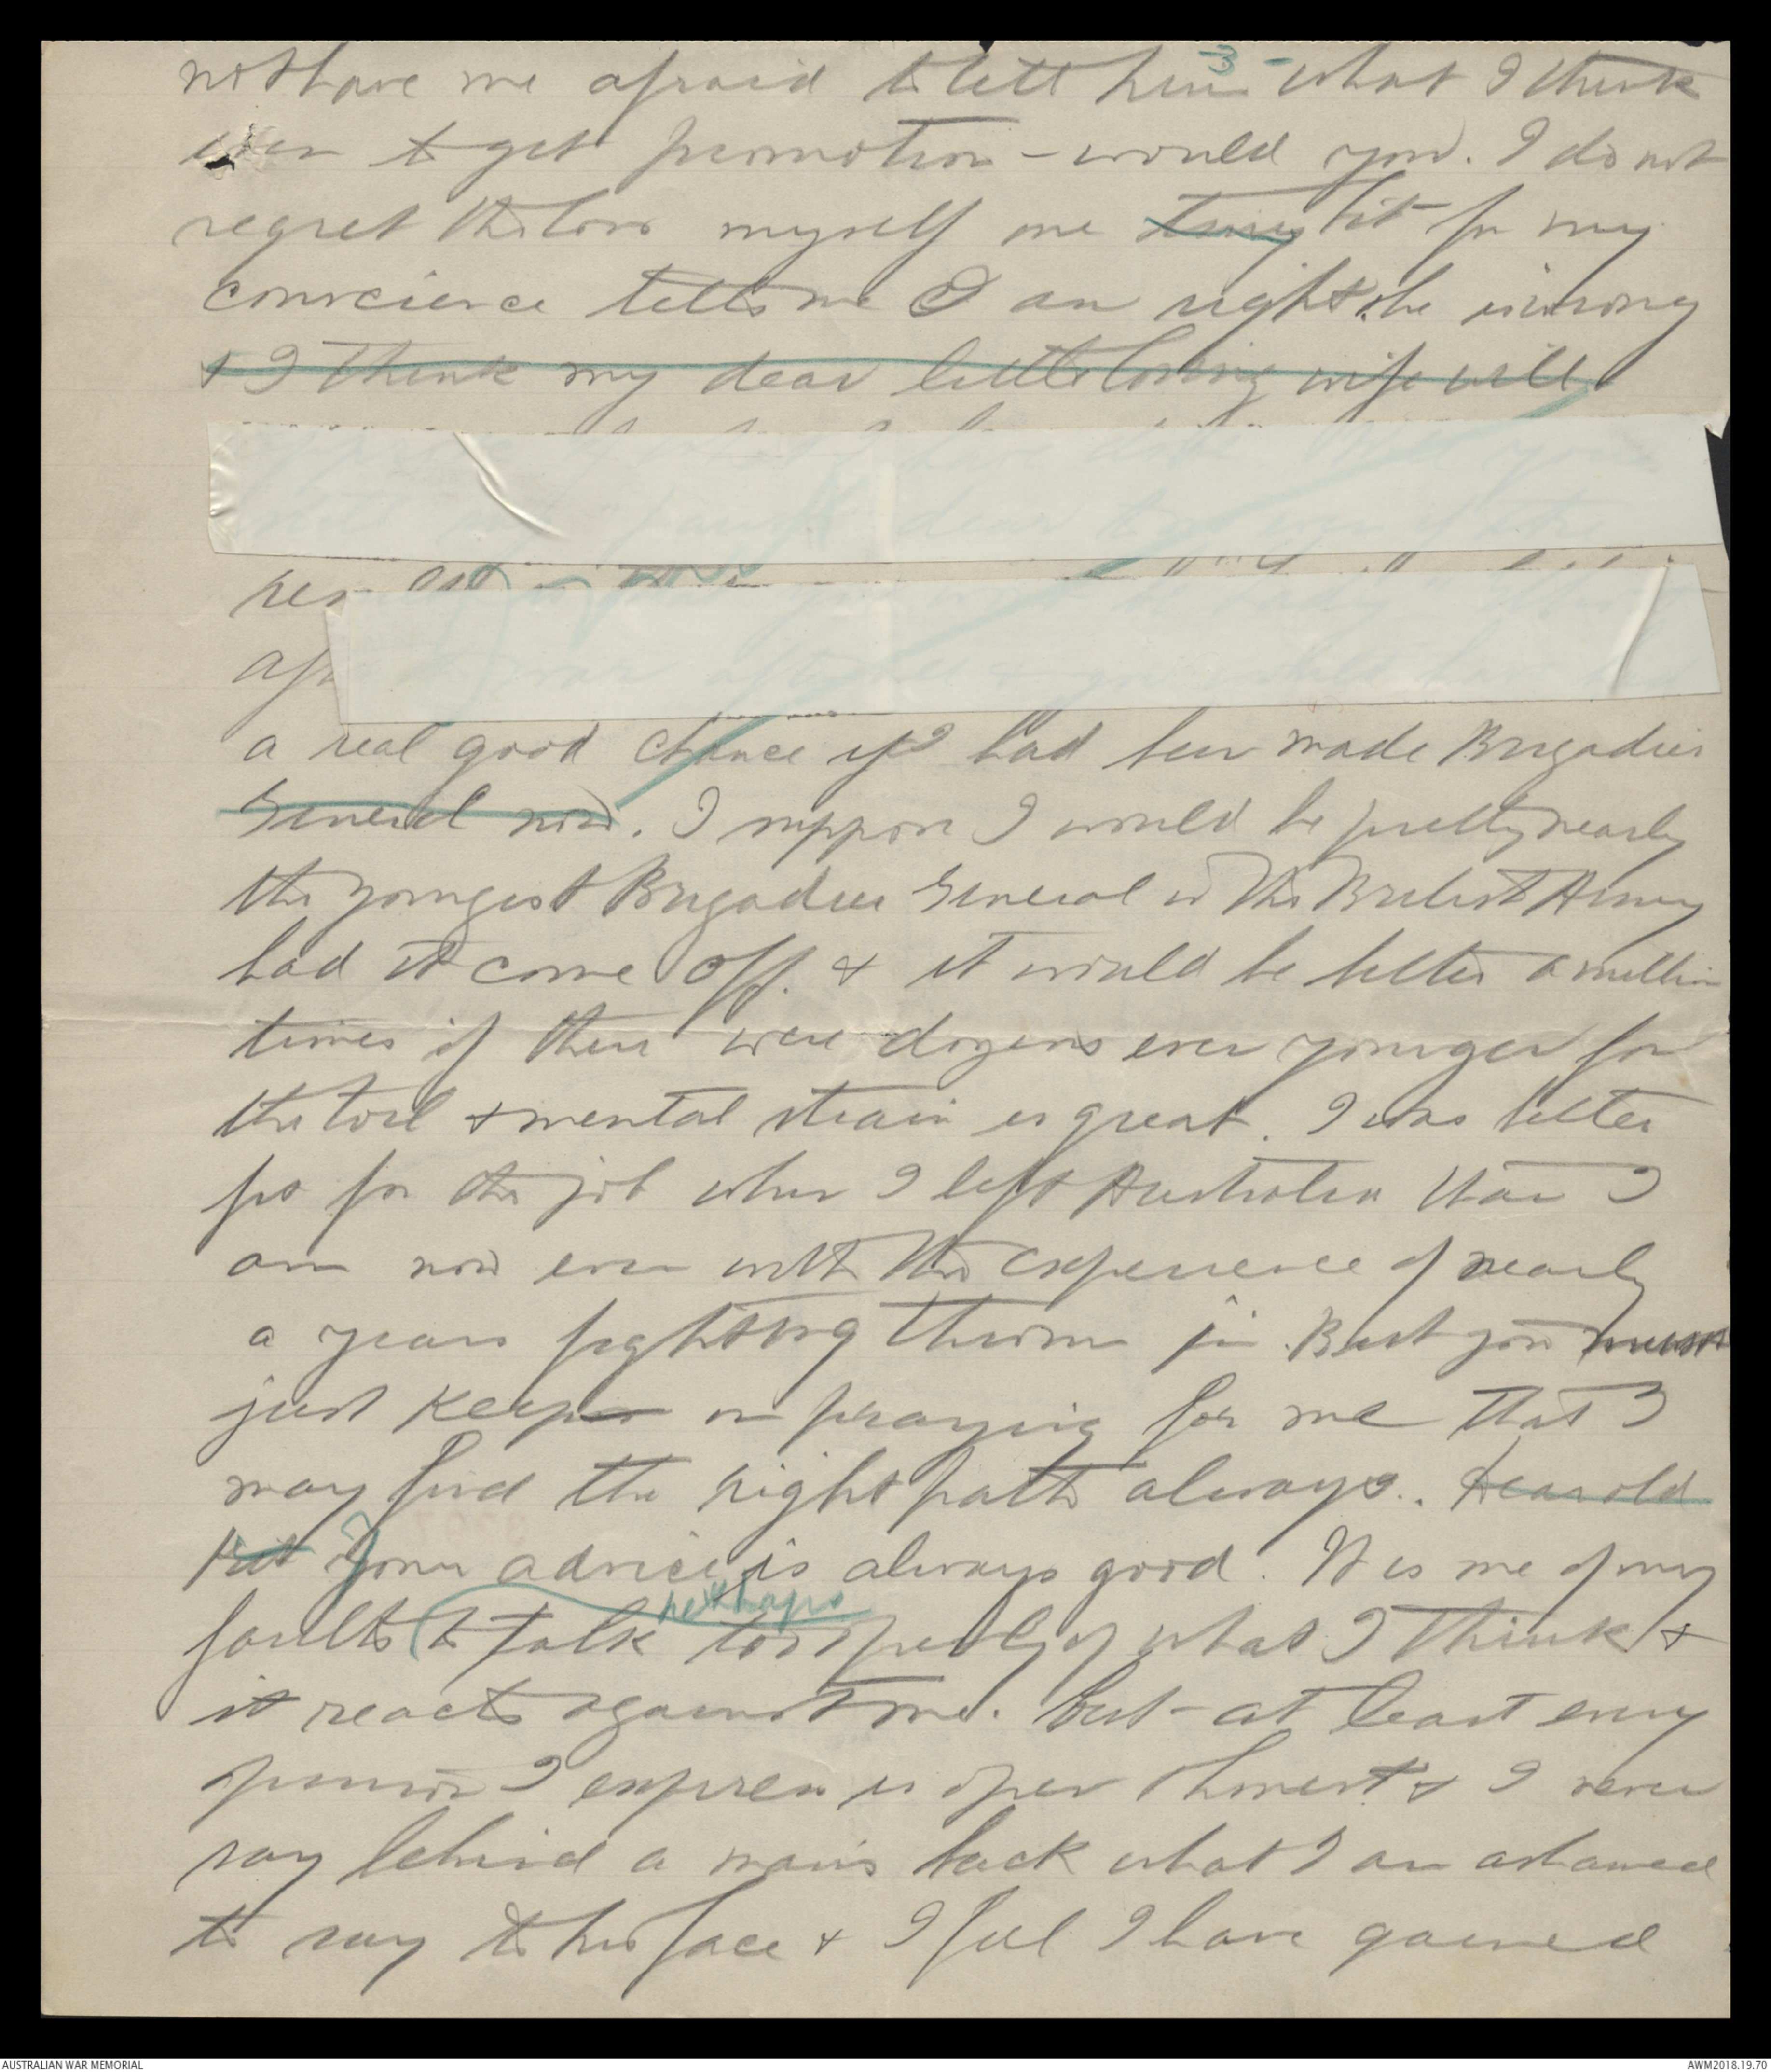 3 -
not have me afraid to tell him what I think
even to get promotion - would you. I do not
regret the loss myself one tiny bit for my
conscience tells me I am right & he is wrong
& I think my dear little loving wife will
a real good chance if I had been made Brigadier
General now. I suppose I would be pretty nearly
the youngest Brigadier General in the British Army
had it come off. & it would be better a million
times if there were dozens even younger for
the toil & mental strain is great. I was better
for the job when I left Australia than I
am now even with the experience of nearly
a years fighting thrown in. But you must
just keep on praying for me that I
may find the right path always. Dear old
Kit Your advice is always good. It is one of my
perhaps
faults to talk too freely of what I think &
it reacts against me. But - at least every
opinion I express is open & honest & I never
say behind a man's back what I am ashamed
to say to his face & I feel I have gained
AUSTRALIAN WAR MEMORIAL
AWM2018.19.70